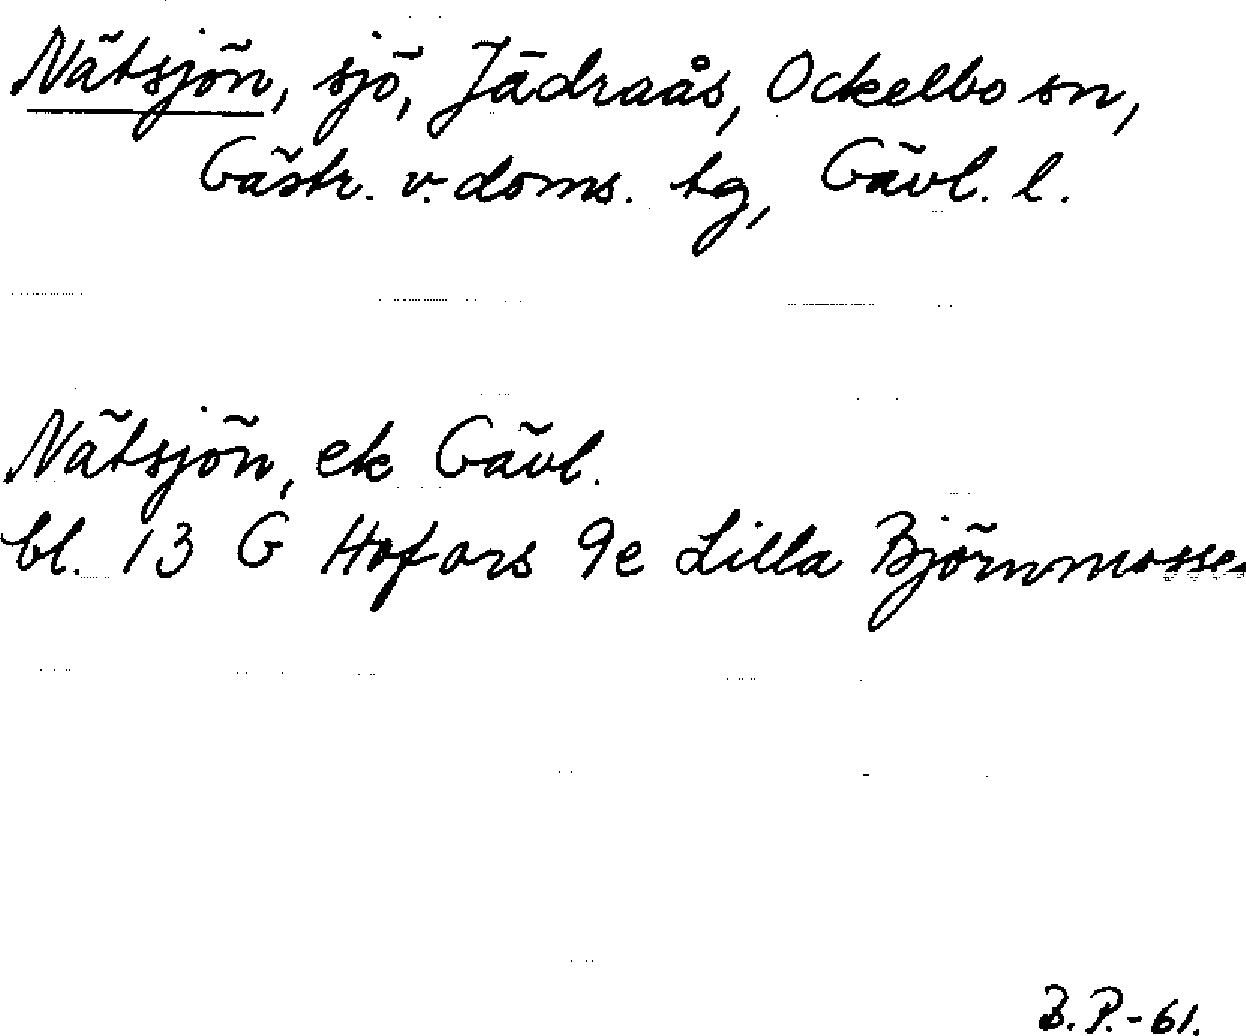 Nätsjön, sjö, Jädraås, Ockelbo sn,
Gästr. v. doms. tg, Gävl. l.
Nätsjön, ek Gävl.
bl. 13 G Hofors 9e Lilla Björnmossen
B. P. - 61.